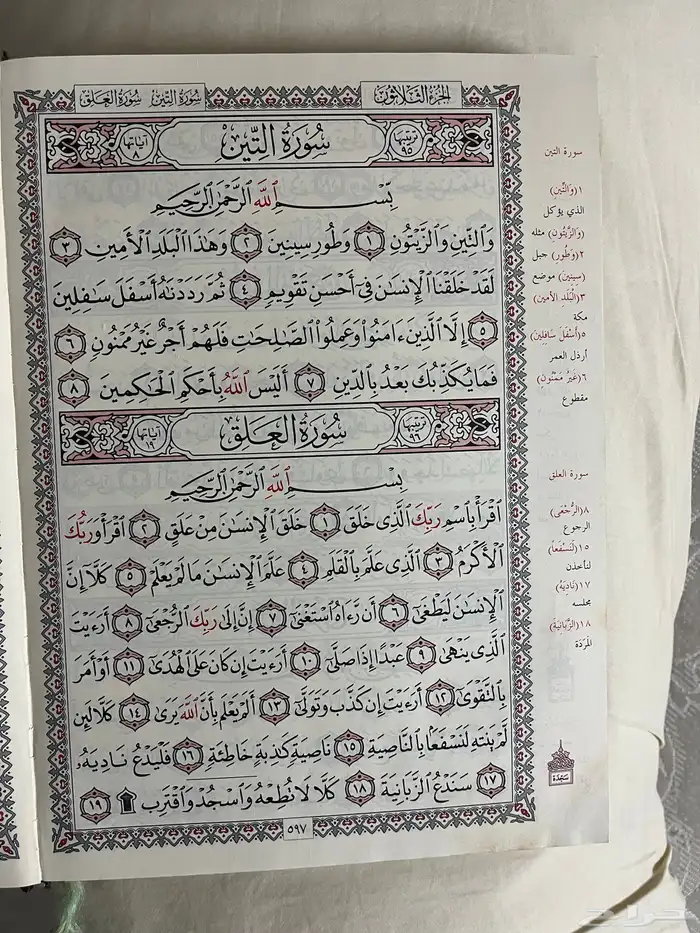 الجزء الثلاثون
سورة التين سورة العلق
ترتيبها ٩٥
سُورَةُ التِّينِ
آياتها ٨
بِسْمِ اللَّهِ الرَّحْمَٰنِ الرَّحِيمِ
وَالتِّينِ وَالزَّيْتُونِ ١ وَطُورِ سِينِينَ ٢ وَهَٰذَا الْبَلَدِ الْأَمِينِ ٣
لَقَدْ خَلَقْنَا الْإِنسَانَ فِي أَحْسَنِ تَقْوِيمٍ ٤ ثُمَّ رَدَدْنَاهُ أَسْفَلَ سَافِلِينَ
٥ إِلَّا الَّذِينَ ءَامَنُوا وَعَمِلُوا الصَّالِحَاتِ فَلَهُمْ أَجْرٌ غَيْرُ مَمْنُونٍ ٦
فَمَا يُكَذِّبُكَ بَعْدُ بِالدِّينِ ٧ أَلَيْسَ اللَّهُ بِأَحْكَمِ الْحَاكِمِينَ ٨
ترتيبها ٩٦
سُورَةُ الْعَلَقِ
آياتها ١٩
بِسْمِ اللَّهِ الرَّحْمَٰنِ الرَّحِيمِ
اقْرَأْ بِاسْمِ رَبِّكَ الَّذِي خَلَقَ ١ خَلَقَ الْإِنسَانَ مِنْ عَلَقٍ ٢ اقْرَأْ وَرَبُّكَ
الْأَكْرَمُ ٣ الَّذِي عَلَّمَ بِالْقَلَمِ ٤ عَلَّمَ الْإِنسَانَ مَا لَمْ يَعْلَمْ ٥ كَلَّا إِنَّ
الْإِنسَانَ لَيَطْغَىٰ ٦ أَن رَّءَاهُ اسْتَغْنَىٰ ٧ إِنَّ إِلَىٰ رَبِّكَ الرُّجْعَىٰ ٨ أَرَءَيْتَ
الَّذِي يَنْهَىٰ ٩ عَبْدًا إِذَا صَلَّىٰ ١٠ أَرَءَيْتَ إِن كَانَ عَلَى الْهُدَىٰ ١١ أَوْ أَمَرَ
بِالتَّقْوَىٰ ١٢ أَرَءَيْتَ إِن كَذَّبَ وَتَوَلَّىٰ ١٣ أَلَمْ يَعْلَم بِأَنَّ اللَّهَ يَرَىٰ ١٤ كَلَّا لَئِن
لَّمْ يَنتَهِ لَنَسْفَعًا بِالنَّاصِيَةِ ١٥ نَاصِيَةٍ كَاذِبَةٍ خَاطِئَةٍ ١٦ فَلْيَدْعُ نَادِيَهُ
١٧ سَنَدْعُ الزَّبَانِيَةَ ١٨ كَلَّا لَا تُطِعْهُ وَاسْجُدْ وَاقْتَرِب ۩ ١٩
٥٩٧
سورة التين
١(وَالتِّينِ)
الذي يؤكل
(وَالزَّيْتُونِ) مثله
٢(وَطُورِ) جبل
(سِينِينَ) موضع
٣(الْبَلَدِ الأمين)
مكة
٥(أَسْفَلَ سَافِلِينَ)
أرذل العمر
٦(غَيْرُ مَمْنُونٍ)
مقطوع
سورة العلق
٨(الرُّجْعَى)
الرجوع
١٥(لَنَسْفَعاً)
لنأخذن
١٧(نَادِيَهُ)
مجلسه
١٨(الزَّبَانِيَةَ)
المَرَدَة
سَجْدَة
حراج